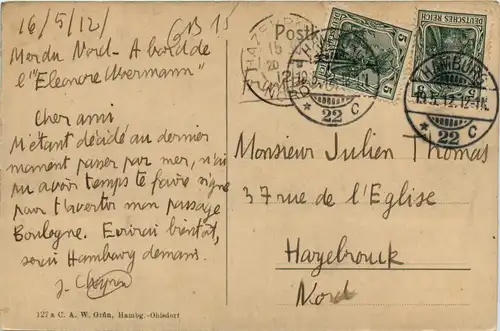 16/5/12/
GB 15
Mer du Nord - A bord de
l'"Eleonore Woermann"
Cher ami
M'étant décidé au dernier
moment passer par mer, n'ai
pu avoir temps te faire signe
pour t'avertir mon passage
Boulogne. Ecrirai bientôt,
serai Hambourg demain.
J.
127 a C. A. W. Grün, Hambg.-Ohlsdorf
Postk
DEUTSCHES REICH
5 5
HAMBURG
12
* 22 C
HAMBURG
19.5.12.12-1N.
* 22 C
Monsieur Julien Thomas
37 rue de l'Eglise
Hazebrouck
Nord